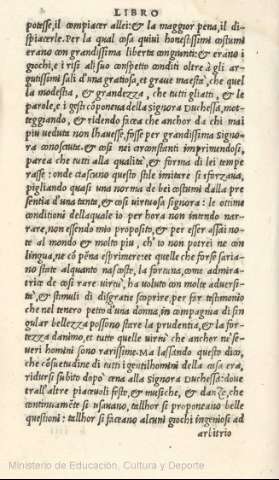 LIBRO
potesse, il compiacer allei: & la maggior pena, il di-
spiacerle. Per la qual cosa quiui honestissimi costumi
erano con grandissima liberta congiunti: & erano i
giochi, e i risi al suo conspetto conditi oltre à gli ar-
gutissimi sali d'una gratiosa, et graue maestà, che quel
la modestia, & grandezza, che tutti gli atti, & le
parole, e i gesti cōponeua della signora Duchessa, mot-
teggiando, & ridendo facea che anchor da chi mai
piu ueduta non l'hauesse, fosse per grandissima signo-
ra conosciuta. & cosi nei circonstanti imprimendosi,
parea che tutti alla qualità, & forma di lei tempe
rasse: onde ciascuno questo stile imitare si sforzaua,
pigliando quasi una norma de bei costumi dalla pre
sentia d'una tanta, & cosi uirtuosa signora: le ottime
conditioni della quale io per hora non intendo nar-
rare, non essendo mio proposito, & per esser assai no-
te al mondo & molto piu, ch'io non potrei ne con
lingua, ne cō pēna esprimere: et quelle che forse saria-
no state alquanto nascoste, la fortuna, come admira-
trice de cosi rare uirtù, ha uoluto con molte aduersi-
tà, & stimuli di disgratie scoprire, per far testimonio
che nel tenero petto d'una donna, in compagnia di sin
gular bellezza possono stare la prudentia, & la for-
tezza d'animo, et tutte quelle uirtù che anchor ne' se-
ueri homini sono rarissime. Ma lassando questo dico,
che cōsuetudine di tutti i gentilhomini della casa era,
ridursi subito dopò cena alla signora Duchessa: doue
trall'altre piaceuoli feste, & musiche, & danze, che
continuamēte si usauano, tallhor si proponeano belle
questioni: tallhor si faceano alcuni giochi ingeniosi ad
arbitrio
Ministerio de Educación, Cultura y Deporte